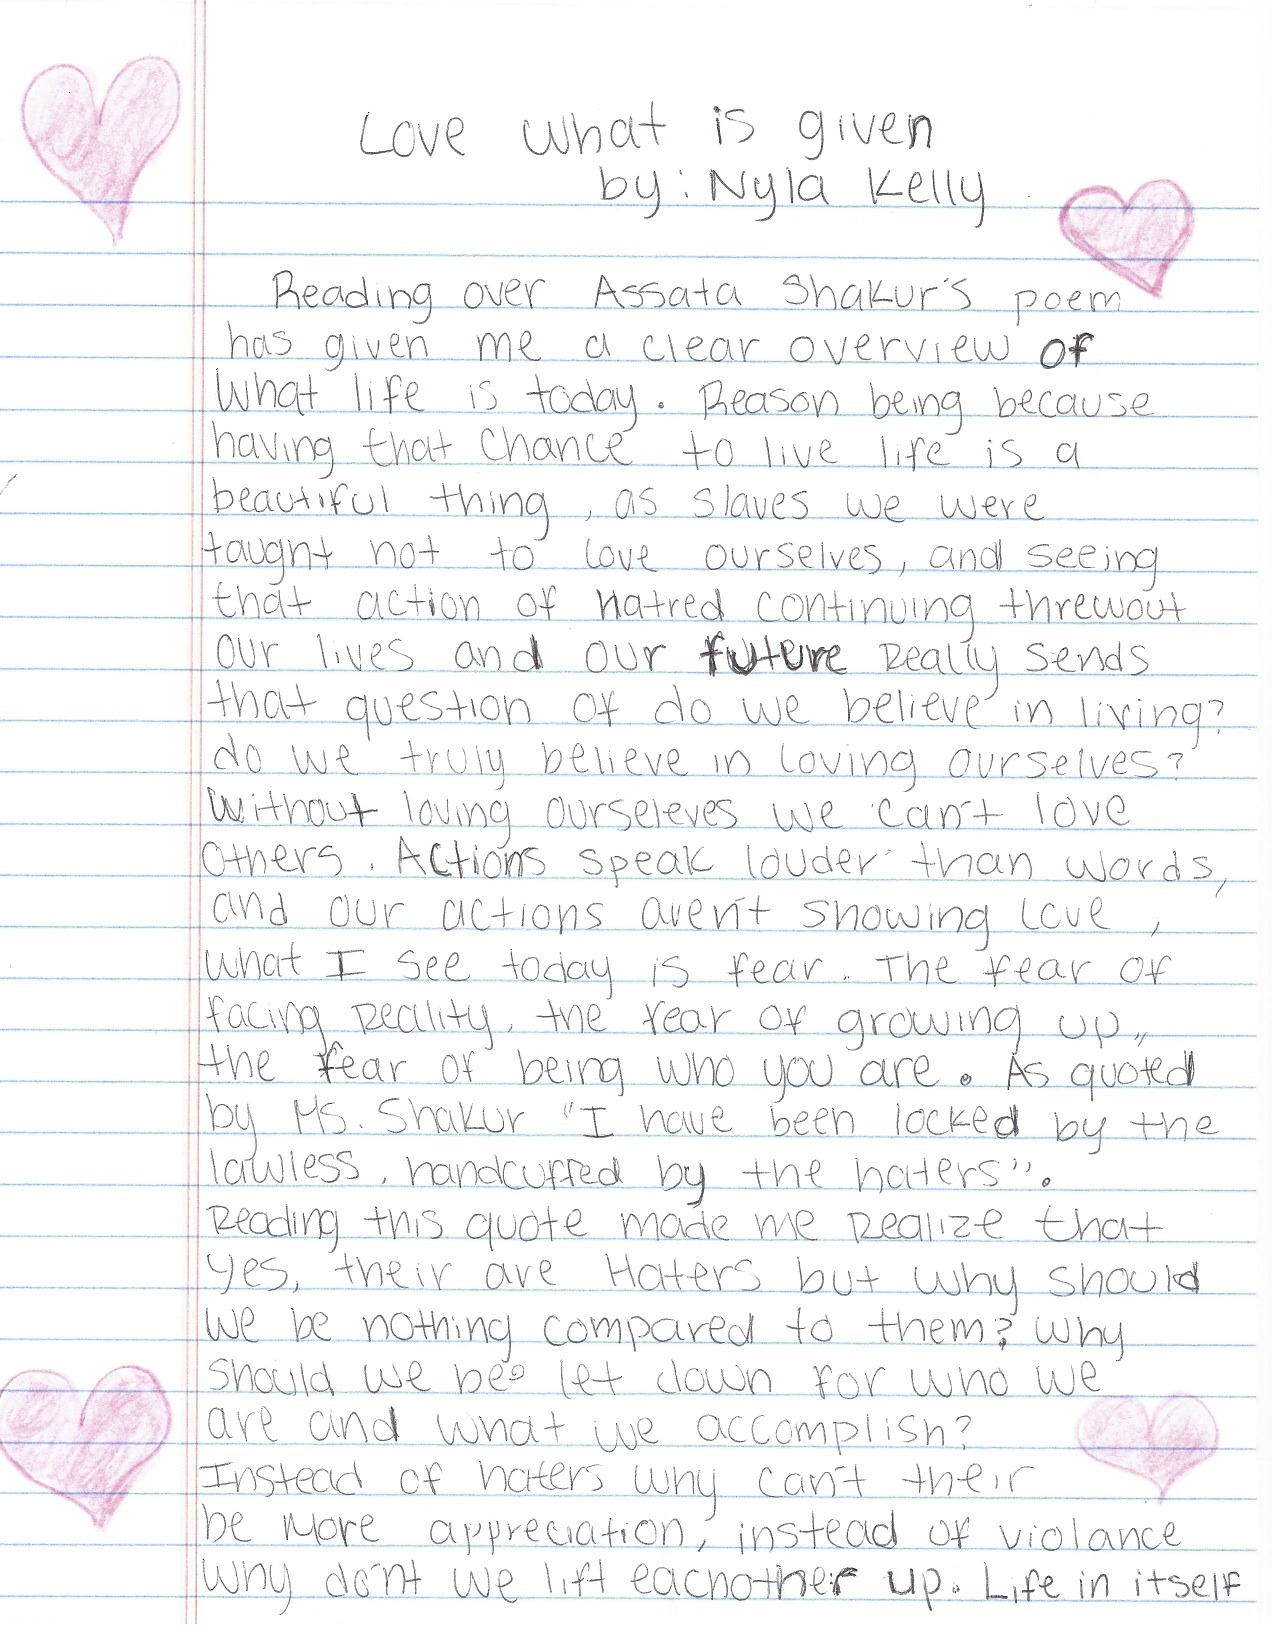 Love what is given
by: Nyla Kelly
Reading over Assata Shakur's poem
has given me a clear overview of
what life is today. Reason being because
having that chance to live life is a
beautiful thing, as slaves we were
taught not to love ourselves, and seeing
that action of hatred continuing threwout
our lives and our future really sends
that question of do we believe in living?
do we truly believe in loving ourselves?
Without loving ourseleves we can't love
others. Actions speak louder than words,
and our actions aren't showing love,
what I see today is fear. The fear of
facing reality, the fear of growing up,,
the fear of being who you are. As quoted
by Ms. Shakur "I have been locked by the
lawless, handcuffed by the haters".
Reading this quote made me realize that
yes, their are Haters but why should
we be nothing compared to them? Why
should we be let down for who we
are and what we accomplish?
Instead of haters why can't their
be more appreciation, instead of violance
why don't we lift eachother up. Life in itself